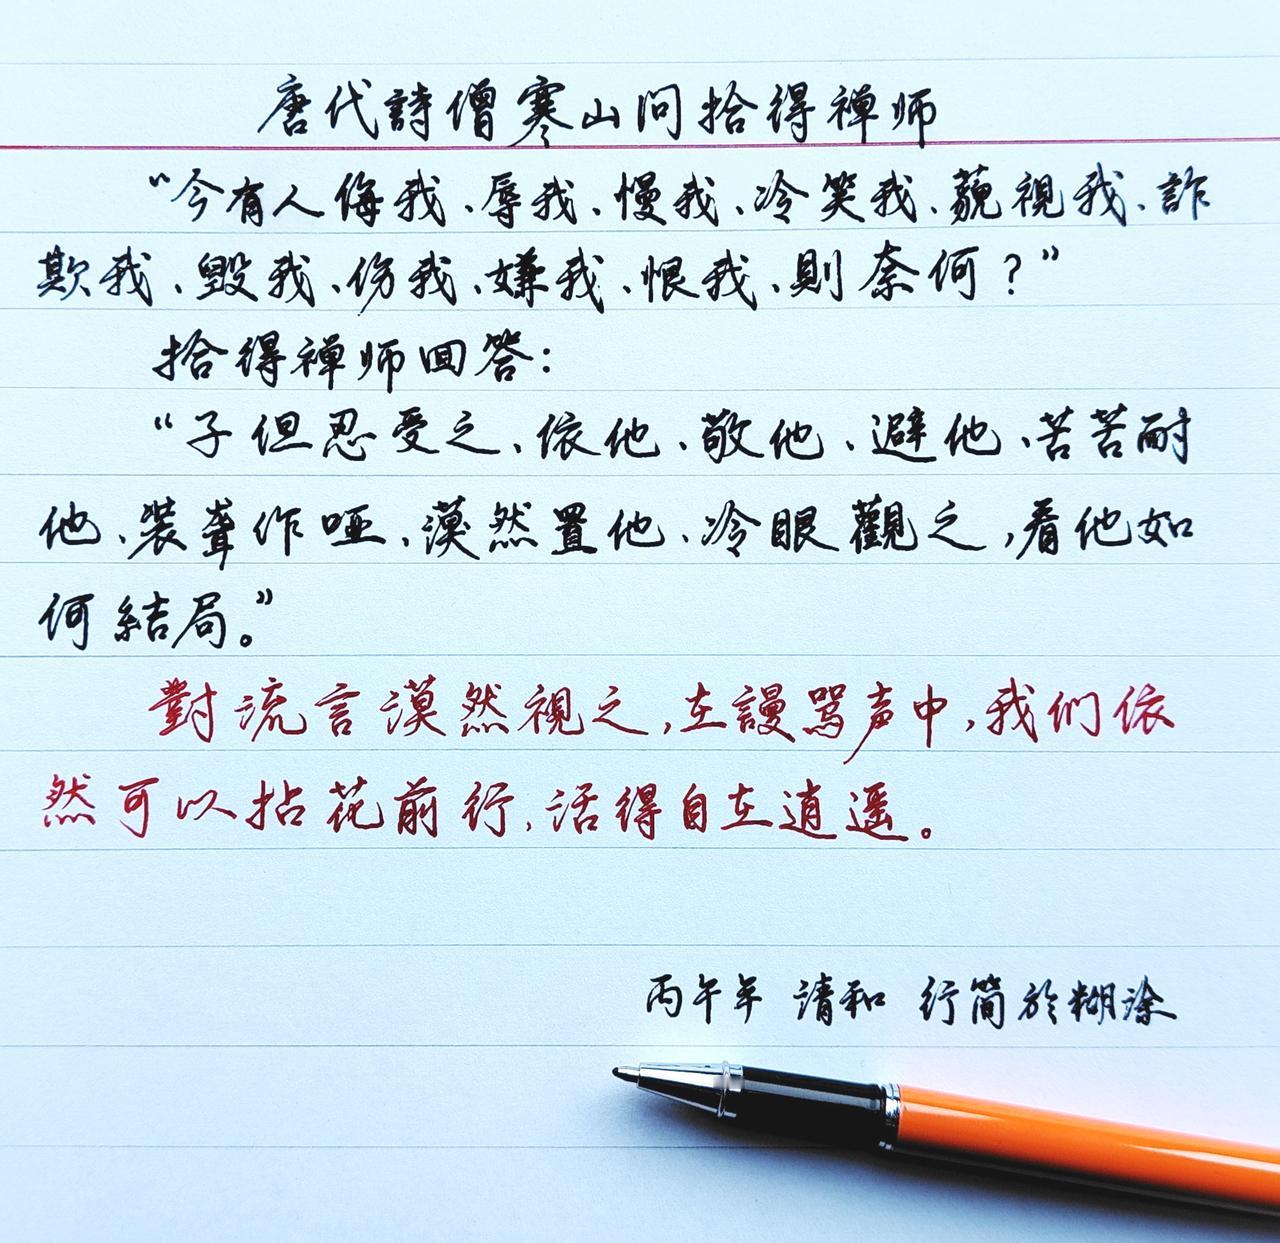 唐代詩僧寒山问拾得禅师
“今有人侮我、辱我、慢我、冷笑我、藐視我、詐
欺我、毁我、伤我、嫌我、恨我、則奈何？”
拾得禅师回答：
“子但忍受之、依他、敬他、避他、苦苦耐
他、装聋作哑、漠然置他、冷眼觀之，看他如
何結局。”
對流言漠然視之，在謾骂声中，我们依
然可以拈花前行，活得自在逍遥。
丙午年 清和 行简於糊涂